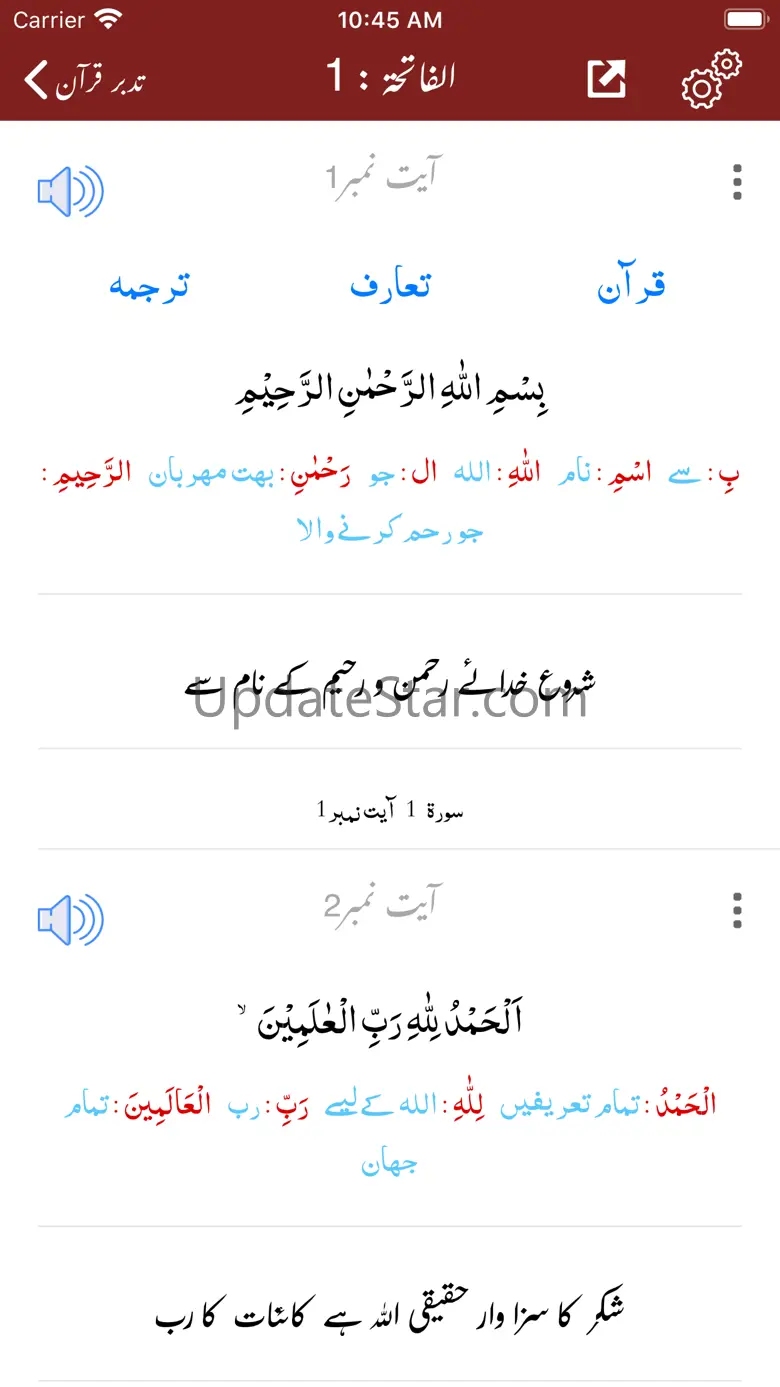 Carrier 10:45 AM
تدبر قرآن الفاتحة : 1
آیت نمبر1
قرآن تعارف ترجمه
بِسْمِ اللّٰهِ الرَّحْمٰنِ الرَّحِیْمِ
بِ : سے اسْمِ : نام اللّٰهِ : الله ال : جو رَحْمٰنِ : بهت مهربان الرَّحِيمِ :
جو رحم کرنے والا
شروع خدائے رحمن و رحیم کے نام سے
UpdateStar.com
سورة 1 آیت نمبر 1
آیت نمبر2
اَلْحَمْدُ لِلّٰهِ رَبِّ الْعٰلَمِیْنَ ۙ
الْحَمْدُ : تمام تعریفیں لِلّٰهِ : الله کے لیے رَبِّ : رب الْعَالَمِينَ : تمام
جهان
شکر کا سزا وار حقیقی اللہ ہے کائنات کا رب